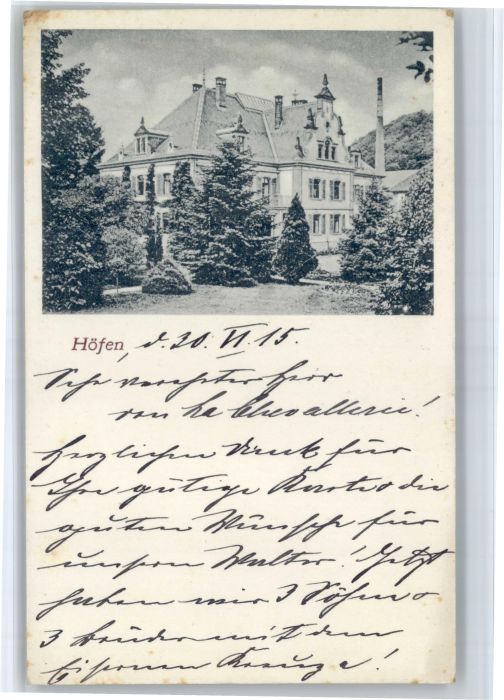 Höfen, d. 20. VI. 15.
Sehr verehrter Herr
von La Chevallerie!
Herzlichen Dank für
Ihre gütige Karte u die
guten Wünsche für
unsern Walter! Jetzt
haben wir 3 Söhne u
3 Brüder mit dem
Eisernen Kreuze!